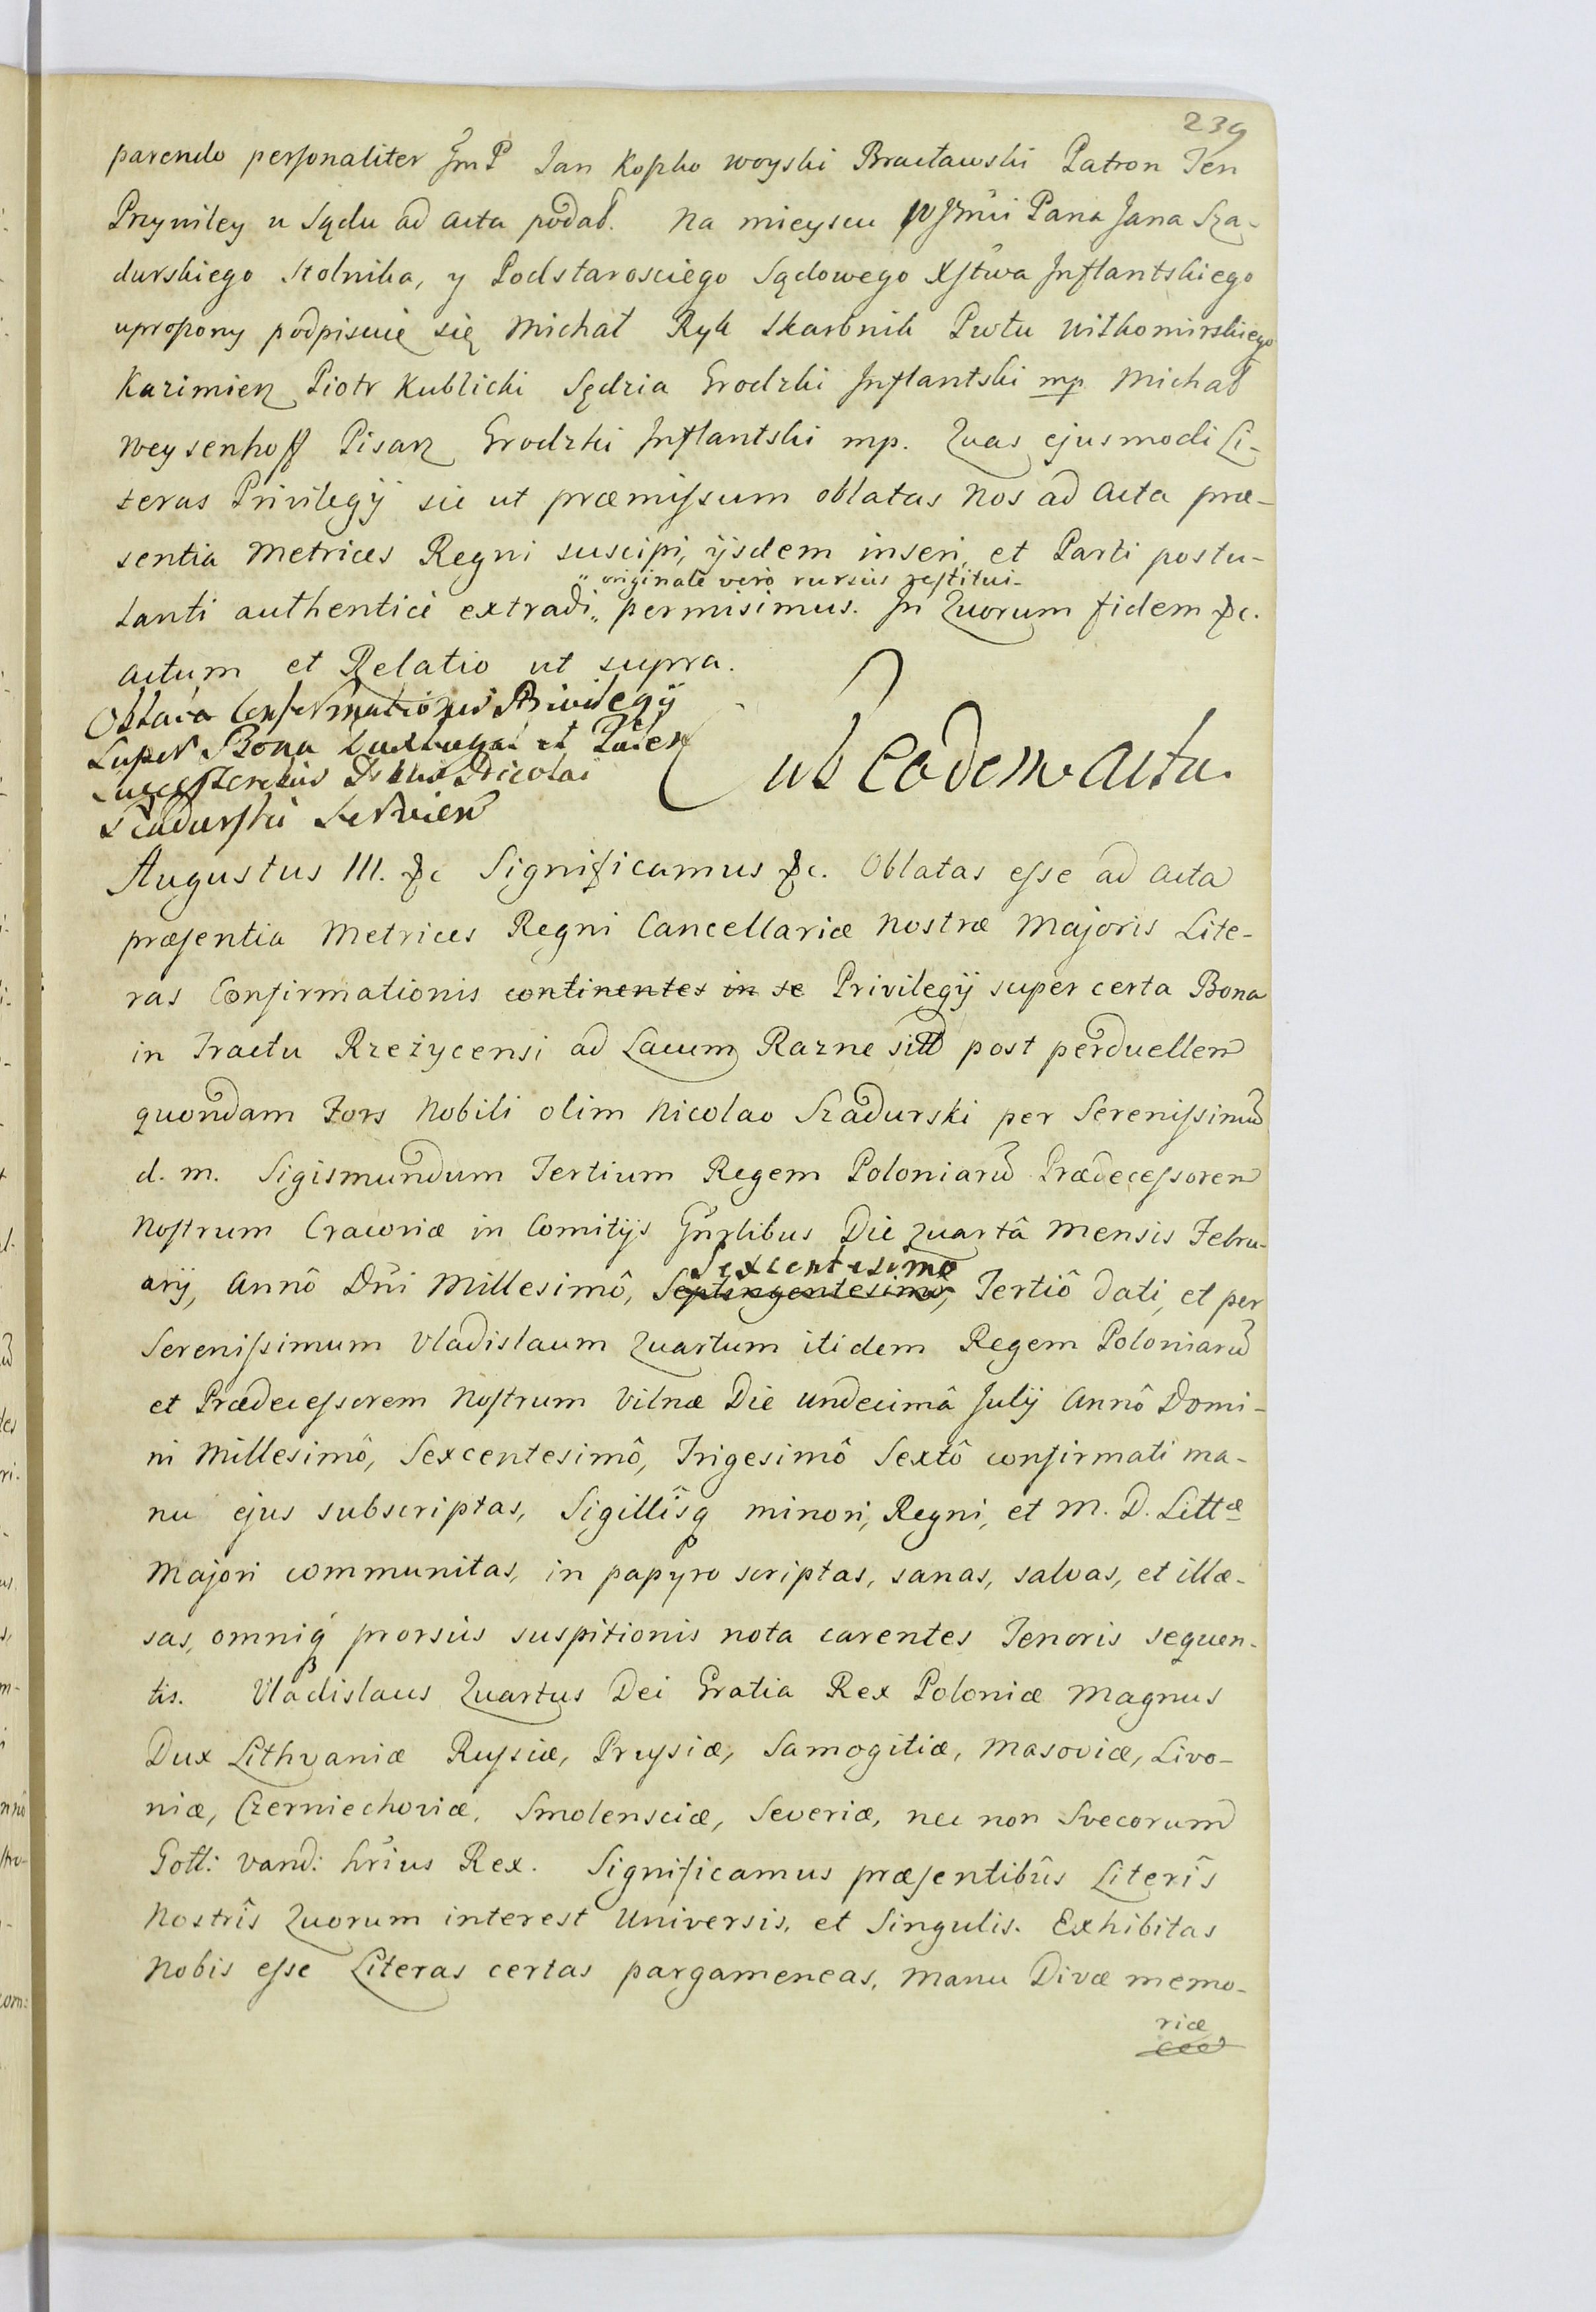 239
parendo personaliter JmP Jan Kopko woyski Bracławski Patron Ten
Przywiley u Sądu ad acta podał. Na mieyscu WJmći Pana Jana Sza-
durskiego Stolnika, y Podstarosciego Sądowego Xstwa Inflantskiego
uproszony podpisuię się Michał Ryk Skarbnik Pwtu Wiłkomirskiego
Kazimierz Piotr Kublicki Sędzia Grodzki Inflantski mp Michał
Weysenhoff Pisarz Grodzki Inflantski mp. Quas ejusmodi Li-
teras Privilegij sic ut præmissum oblatas Nos ad Acta præ-
sentia Metrices Regni suscipi, ijsdem inseri, et Parti postu-
„ originale verò rursùs restitui-
lanti authenticè extradi „ permisimus. In Quorum fidem &c.
actum et Relatio ut supra.
Oblata Confirmationis Privilegij
super Bona et
Successoribus Nicolai
Szadurski Servien
Sub Eodem Actu.
Augustus III. &c Significamus &c. Oblatas esse ad Acta
præsentia Metrices Regni Cancellariæ Nostræ Majoris Lite-
ras Confirmationis continentes in se Privilegij super certa Bona
in Tractu Rzeżycensi ad Lacum Razne sitta post perduellem
quondam Fors Nobili olim Nicolao Szadurski per Serenissimum
d. m. Sigismundum Tertium Regem Poloniarum Prædecessorem
Nostrum Cracoviæ in Comitijs Gñrlibus Die Quartâ Mensis Febru-
Sexcentesimo
arij, Annô Dñi Millesimô, Septingentesimô, Tertiô dati, et per
Serenissimum Vladislaum Quartum itidem Regem Poloniarum
et Prædecessorem Nostrum Vilnæ Die undecimâ Julij Annô Domi-
ni Millesimô, Sexcentesimô, Trigesimô Sextô confirmati ma-
nu ejus subscriptas, Sigillîsq minori, Regni, et M. D. Littæ
Majori communitas, in papyro scriptas, sanas, salvas, et illæ-
sas, omniq́ prorsùs suspitionis nota carentes Tenoris sequen-
tis. Vladislaus Quartus Dei Gratia Rex Poloniæ Magnus
Dux Lithvaniæ Russiæ, Prussiæ, Samogitiæ, Masoviæ, Livo-
niæ, Czerniechoviæ, Smolensciæ, Severiæ, nec non Svecorum
Gott: Vand: hr̃ius Rex. Significamus præsentibûs Literîs
Nostrîs Quorum interest Universis, et Singulis. Exhibitas
Nobis esse Literas certas pargameneas, manu Divæ memo-
riæ